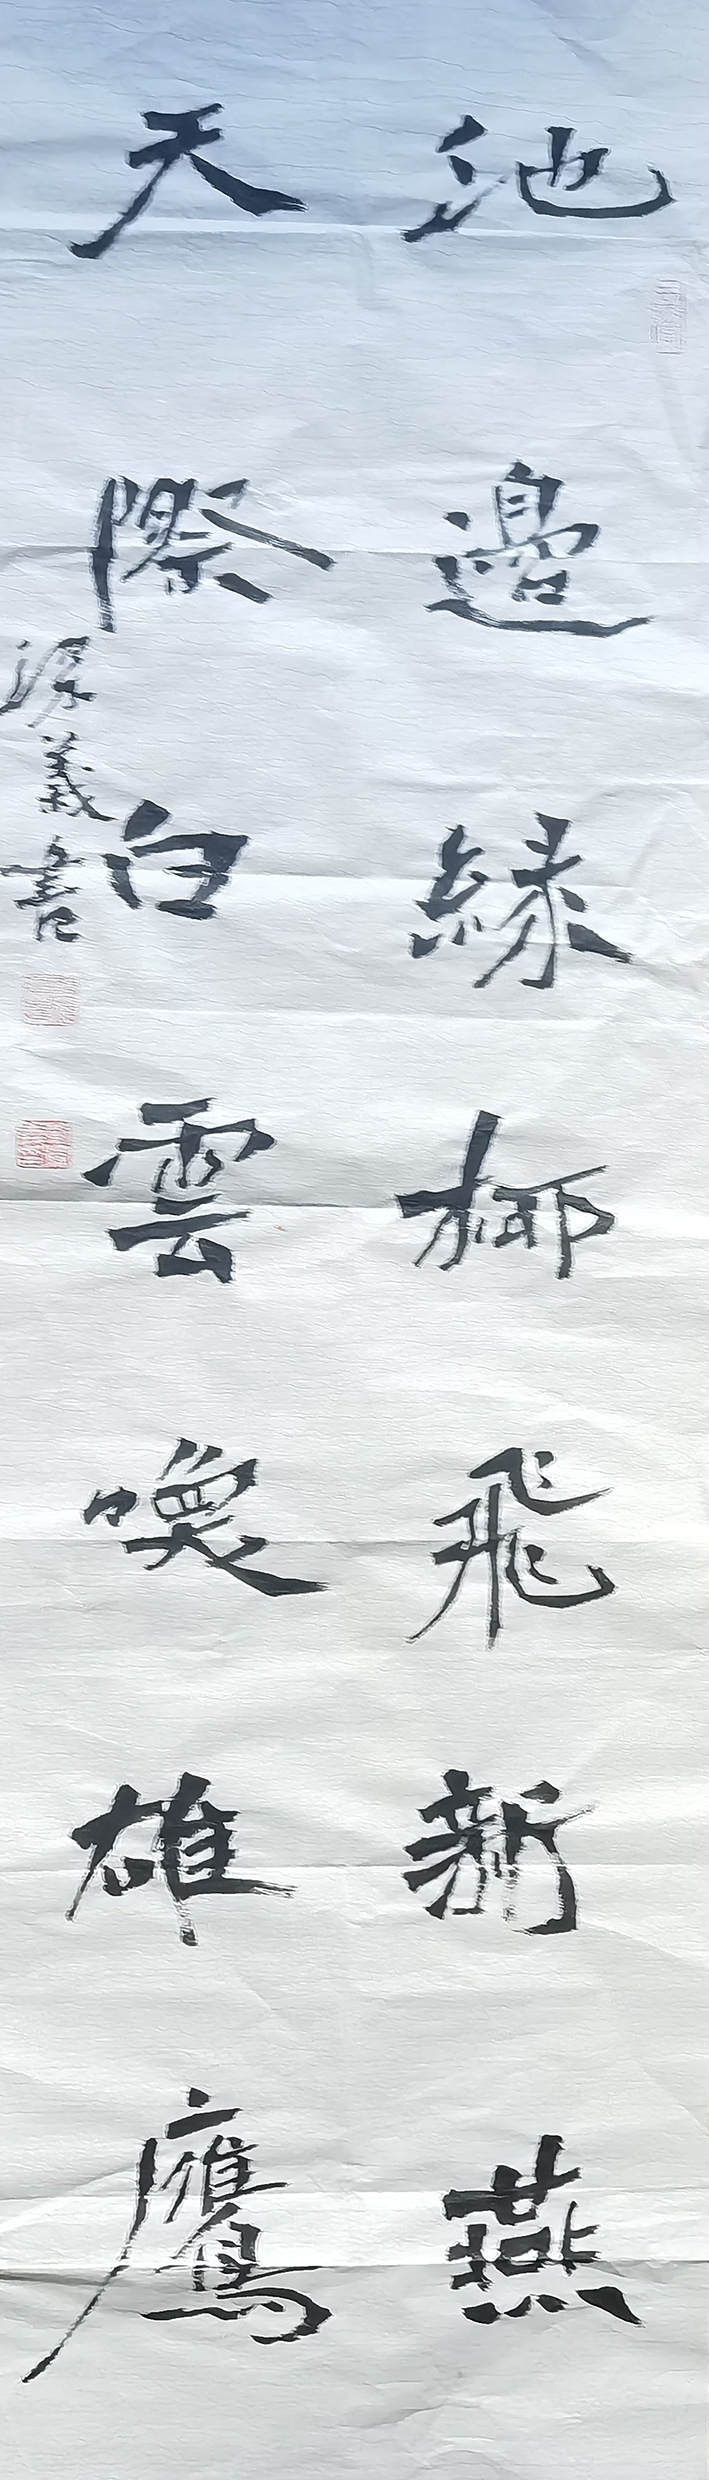 池邊緑柳飛新燕
天際白雲喚雄鷹
義書